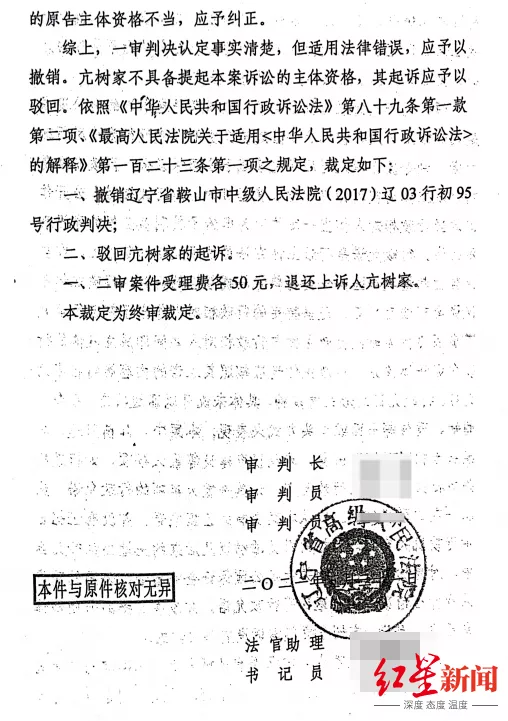 的原告主体资格不当，应予纠正。
综上，一审判决认定事实清楚，但适用法律错误，应予以
撤销。亢树家不具备提起本案诉讼的主体资格，其起诉应予以
驳回。依照《中华人民共和国行政诉讼法》第八十九条第一款
第二项、《最高人民法院关于适用<中华人民共和国行政诉讼法>
的解释》第一百二十三条第一项之规定，裁定如下：
一、撤销辽宁省鞍山市中级人民法院（2017）辽 03 行初 95
号行政判决；
二、驳回亢树家的起诉。
一、二审案件受理费各50元，退还上诉人亢树家。
本裁定为终审裁定。
审 判 长
审 判 员
审 判 员
辽宁省高级人民法院
二〇二
年
月
日
本件与原件核对无异
法 官 助 理
书 记 员
红星新闻
深度 态度 温度